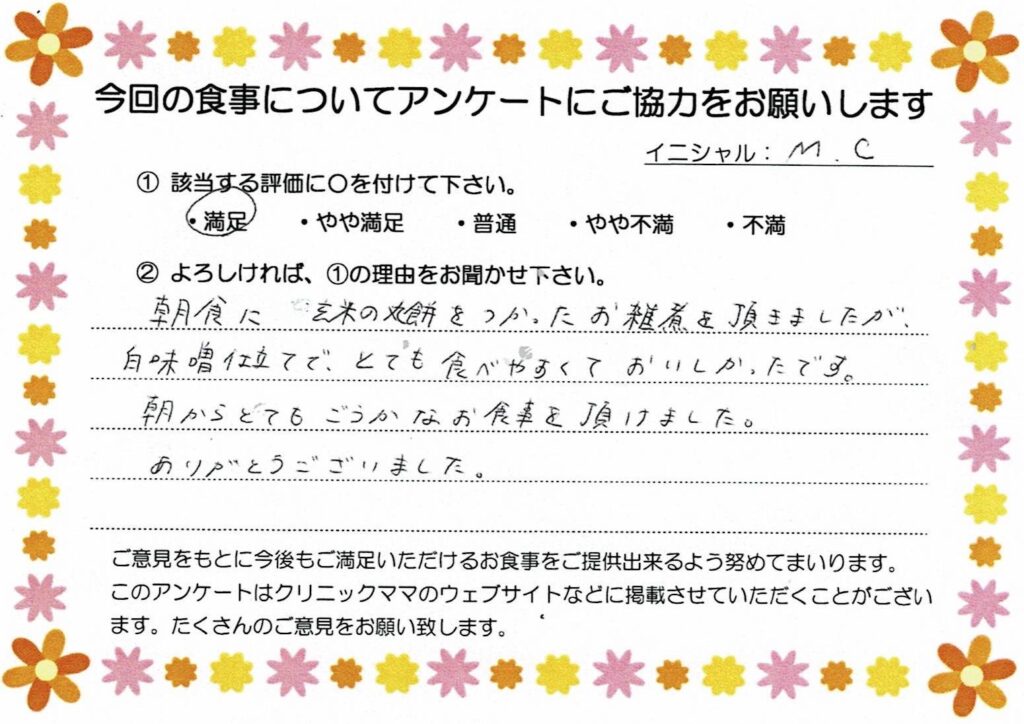 今回の食事についてアンケートにご協力をお願いします
イニシャル： M.C
① 該当する評価に〇を付けて下さい。
・満足 ・やや満足 ・普通 ・やや不満 ・不満
② よろしければ、①の理由をお聞かせ下さい。
朝食に 玄米の丸餅をつかったお雑煮を頂きましたが、
白味噌仕立てで、とても食べやすくて おいしかったです。
朝からとても ごうかなお食事を頂けました。
ありがとうございました。
ご意見をもとに今後もご満足いただけるお食事をご提供出来るよう努めてまいります。
このアンケートはクリニックママのウェブサイトなどに掲載させていただくことがござい
ます。たくさんのご意見をお願い致します。